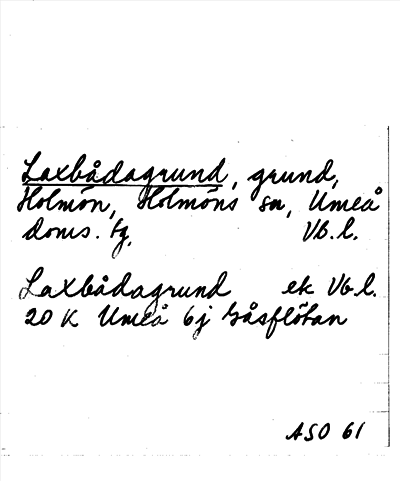 Laxbådagrund, grund,
Holmön, Holmöns sn, Umeå
doms. tg, Vb. l.
Laxbådagrund ek Vb. l.
20 K Umeå 6j Gåsflötan
ASO 61